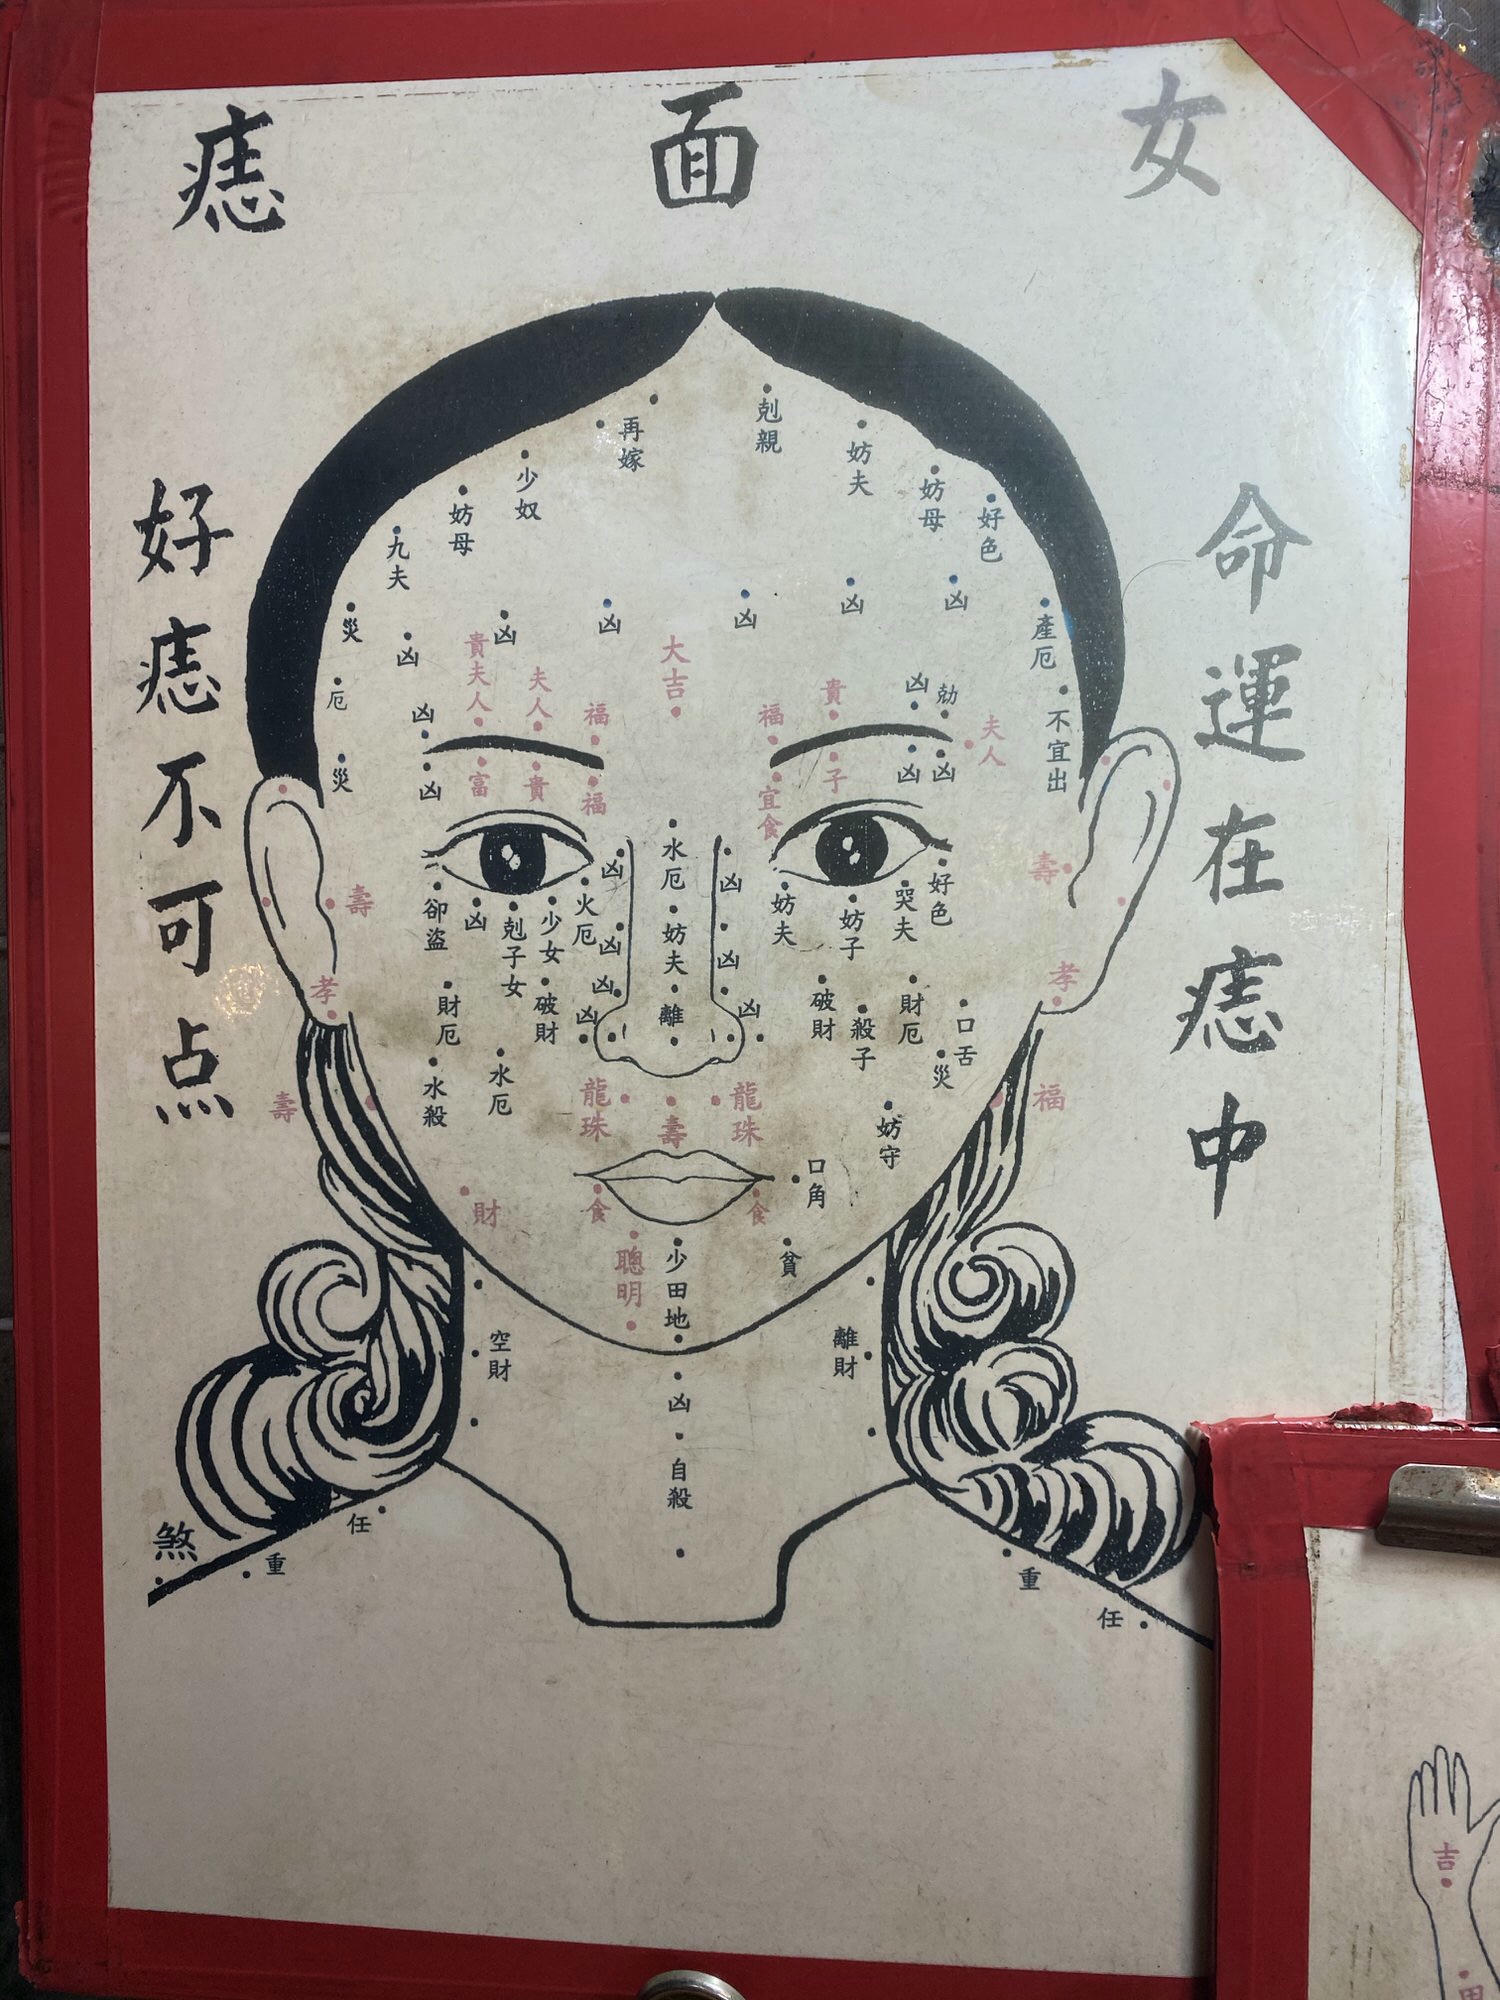 女面痣
命運在痣中
好痣不可点
再嫁
剋親
妨夫
少奴
妨母
妨母
好色
九夫
災
凶
凶
凶
凶
凶
凶
凶
產厄
厄
災
凶
凶
貴夫人
夫人
福
大吉
福
貴
凶
夫人
不宜出
富
貴
福
宜食
子
凶
凶
水厄
妨夫
離
凶
凶
凶
凶
凶
凶
凶
火厄
少女
剋子女
凶
卻盜
妨夫
妨子
哭夫
好色
壽
壽
孝
孝
財厄
破財
破財
殺子
財厄
口舌
災
水殺
水厄
妨守
壽
福
龍珠
壽
龍珠
口角
財
食
食
聰明
少田地
貧
空財
離財
凶
自殺
煞
重
任
重
任
吉